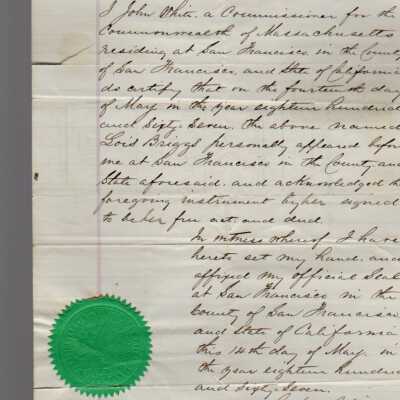 I John White, a Commissioner for the
Commonwealth of Massachusetts
residing at San Francisco in the County
of San Francisco, and State of California
do certify that on the fourteenth day
of May in the year eighteen hundred
and Sixty-Seven, the above named
Lois Briggs personally appeared before
me at San Francisco in the County and
State aforesaid, and acknowledged the
foregoing instrument by her signed
to be her free act and deed.
In witness whereof I have
hereto set my hand, and
affixed my official Seal
at San Francisco in the
County of San Francisco
and State of California
this 14th day of May, in
the year eighteen hundred
and Sixty Seven.